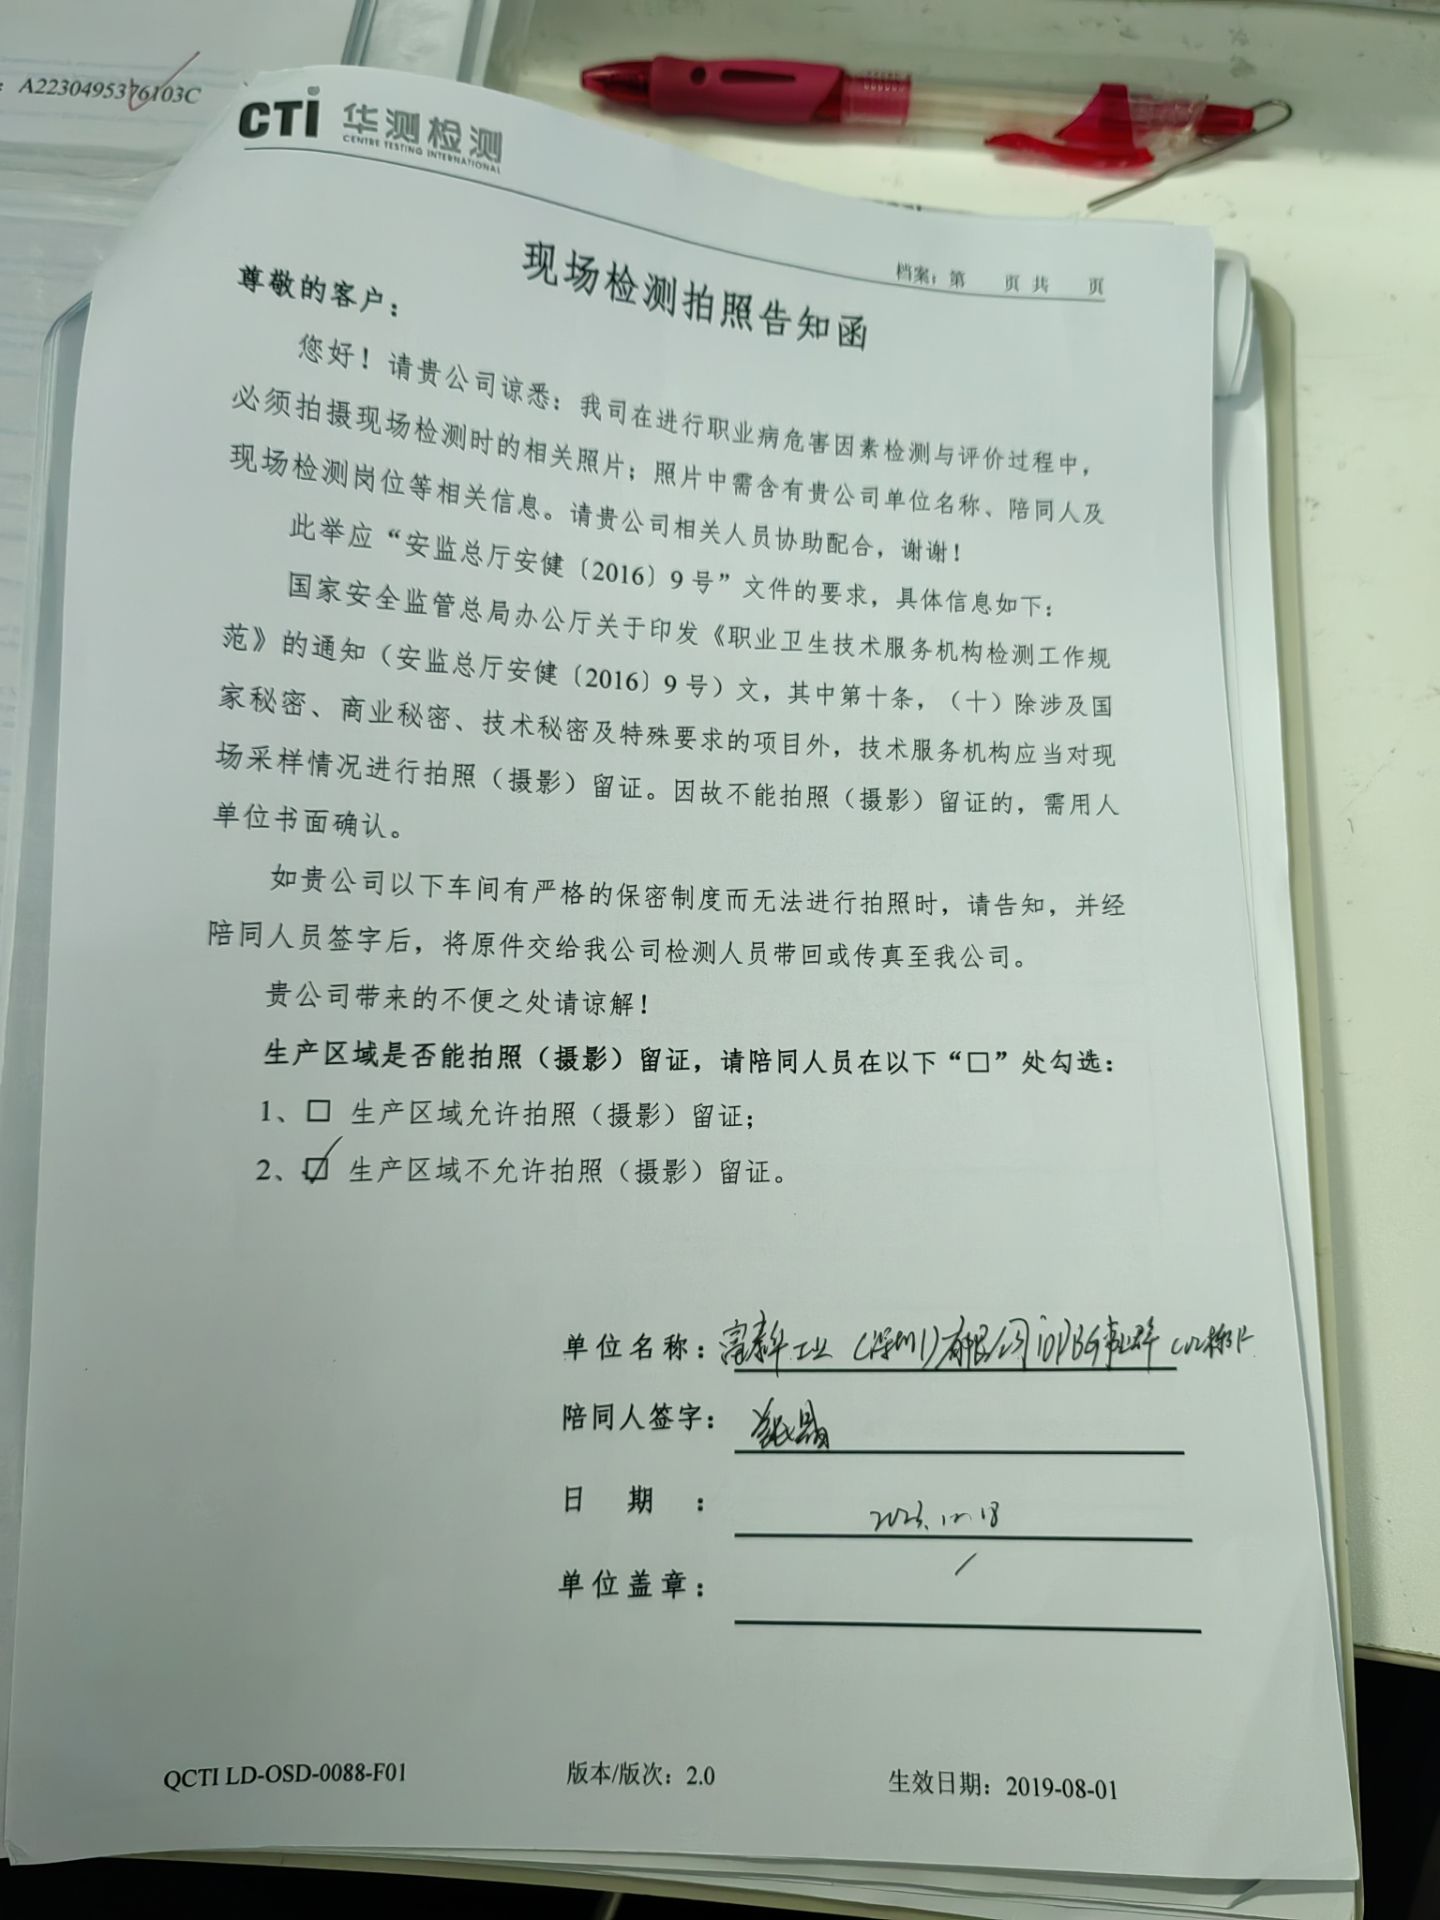 A2230495376103C
CTI 华测检测
CENTRE TESTING INTERNATIONAL
档案：第 页 共 页
现场检测拍照告知函
尊敬的客户：
您好！请贵公司谅悉：我司在进行职业病危害因素检测与评价过程中，
必须拍摄现场检测时的相关照片；照片中需含有贵公司单位名称、陪同人及
现场检测岗位等相关信息。请贵公司相关人员协助配合，谢谢！
此举应“安监总厅安健〔2016〕9号”文件的要求，具体信息如下：
国家安全监管总局办公厅关于印发《职业卫生技术服务机构检测工作规
范》的通知（安监总厅安健〔2016〕9号）文，其中第十条，（十）除涉及国
家秘密、商业秘密、技术秘密及特殊要求的项目外，技术服务机构应当对现
场采样情况进行拍照（摄影）留证。因故不能拍照（摄影）留证的，需用人
单位书面确认。
如贵公司以下车间有严格的保密制度而无法进行拍照时，请告知，并经
陪同人员签字后，将原件交给我公司检测人员带回或传真至我公司。
贵公司带来的不便之处请谅解！
生产区域是否能拍照（摄影）留证，请陪同人员在以下“□”处勾选：
1、□ 生产区域允许拍照（摄影）留证；
2、☑ 生产区域不允许拍照（摄影）留证。
单位名称：富泰华工业（深圳）有限公司iDPBG事业群
陪同人签字：
日期：2023.12.18
单位盖章：/
QCTI LD-OSD-0088-F01 版本/版次：2.0 生效日期：2019-08-01